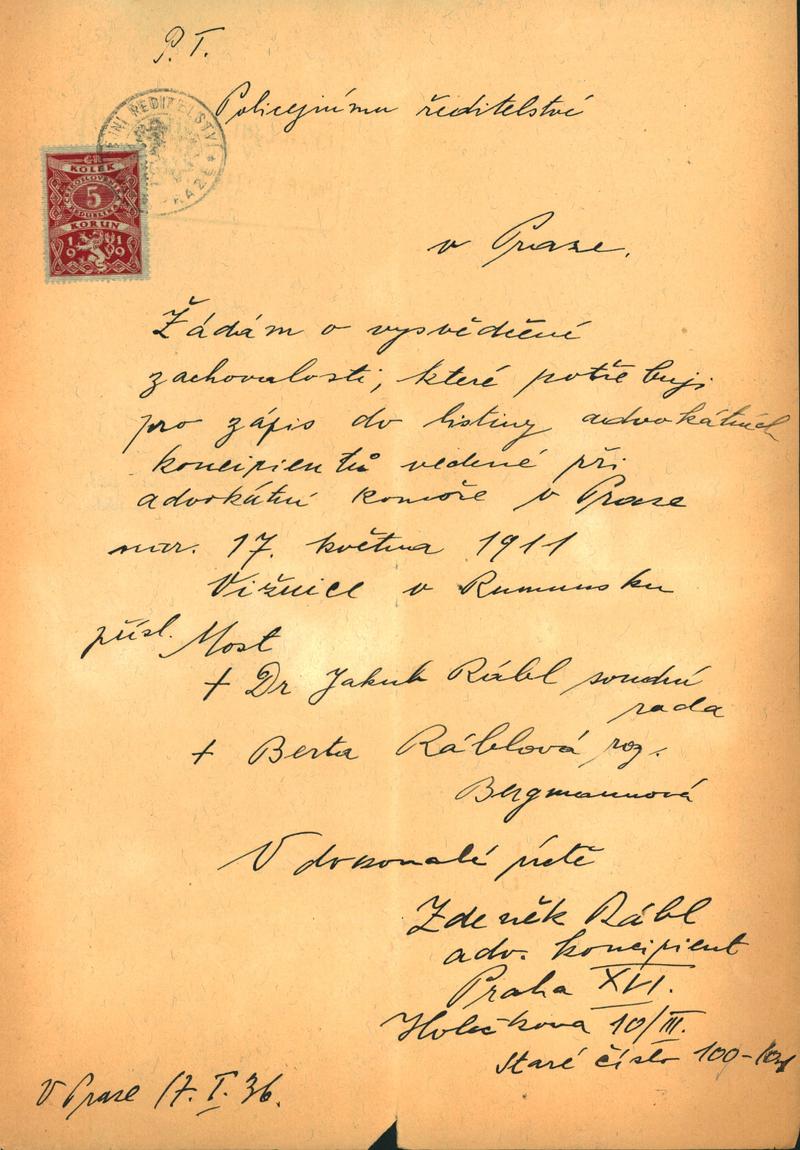 P. T.
Policejnímu ředitelství
NÍ ŘEDITELSTVÍ
PRAZE *
KOLEK
ČESKOSLOVENSKÁ
5
REPUBLIKA
KORUN
1919
v Praze.
Žádám o vysvědčení
zachovalosti, které potřebuji
pro zápis do listiny advokátních
koncipientů vedené při
advokátní komoře v Praze
nar. 17. května 1911
Vižnice v Rumunsku
přísl. Most
+ Dr Jakub Rábl soudní
rada
+ Berta Ráblová roz.
Bergmannová
V dokonalé úctě
Zdeněk Rábl
adv. koncipient
Praha XVI.
Holečkova 10/III.
Staré číslo 100-
V Praze 17. I. 36.